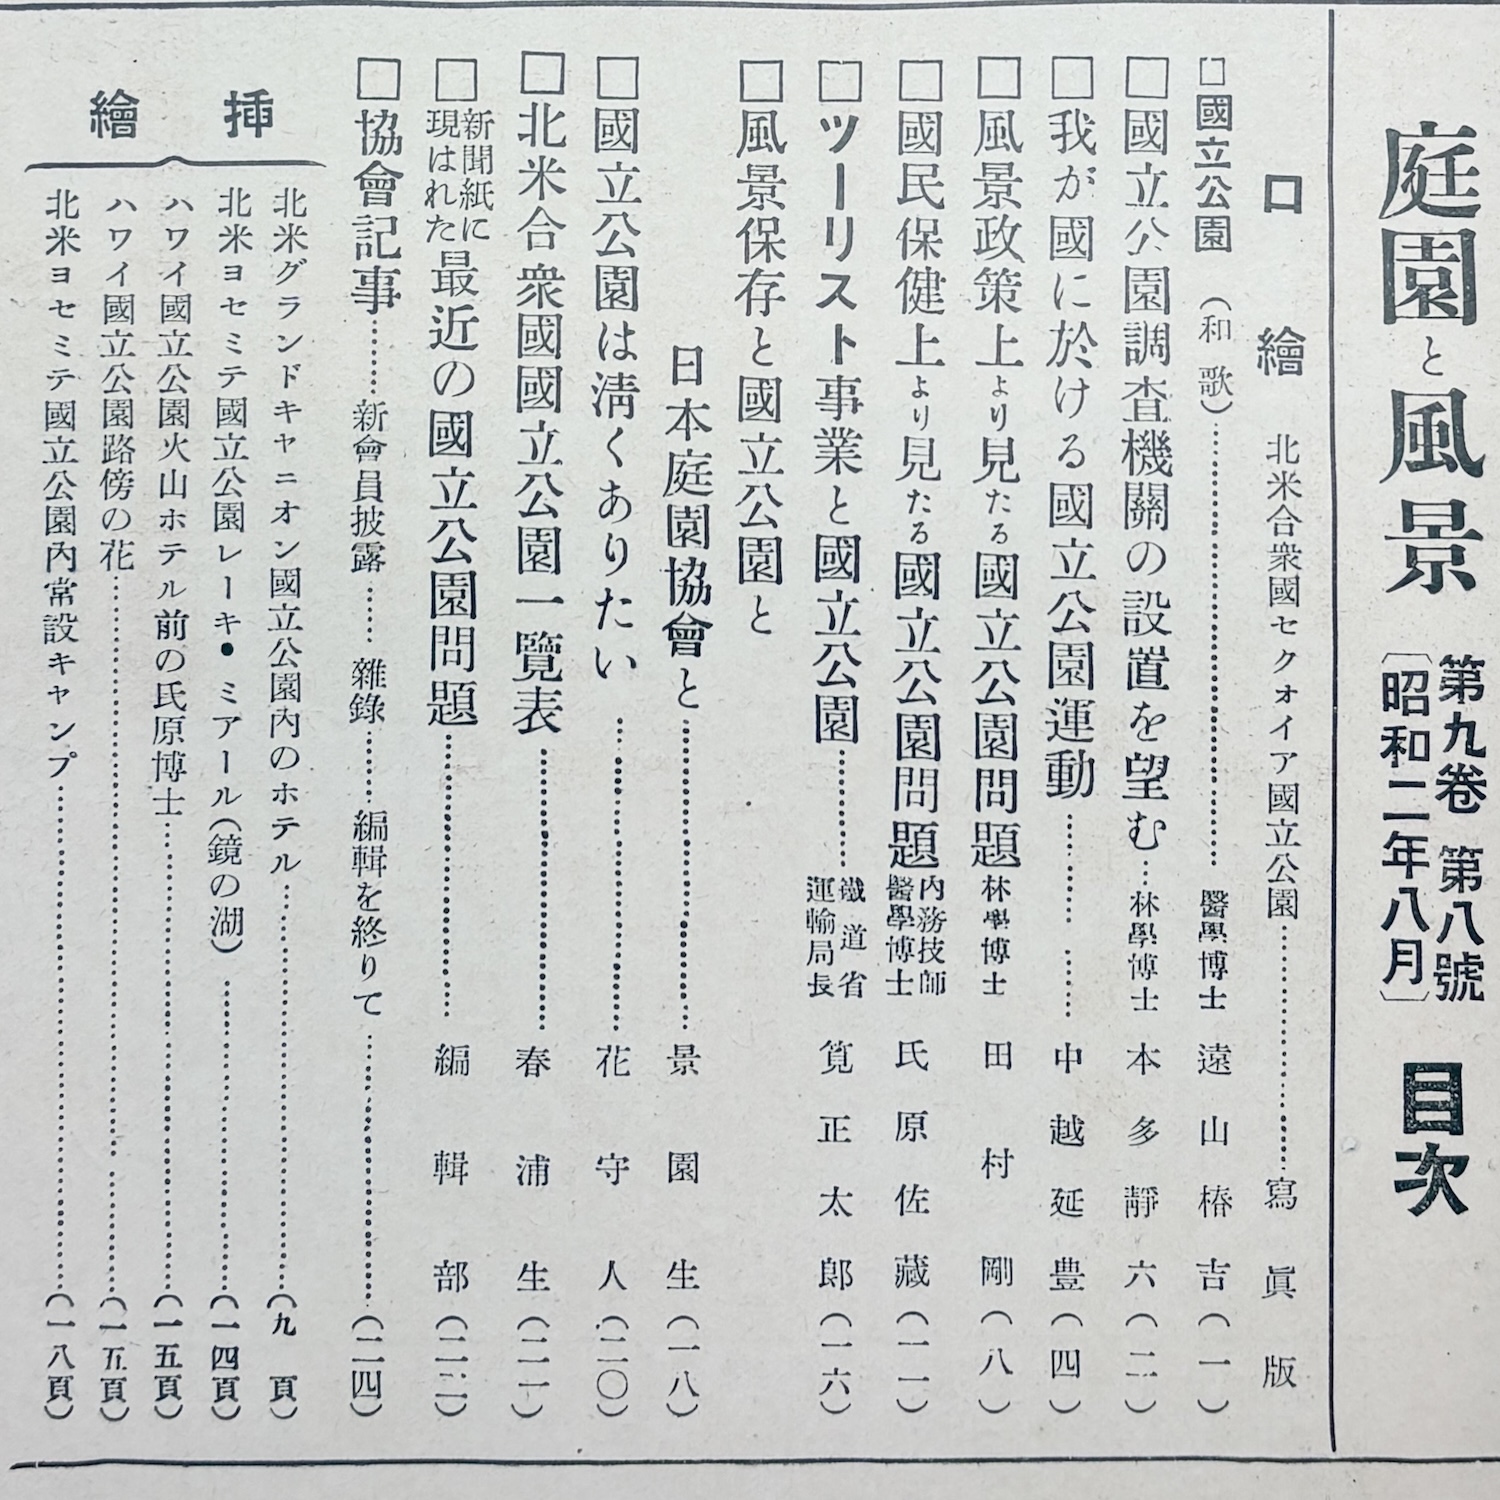 庭園と風景 第九卷 第八號 〔昭和二年八月〕 目次
口繪 北米合衆國セクォイア國立公園……寫眞版
□國立公園(和歌)……醫學博士 遠山椿吉(一)
□國立公園調査機關の設置を望む…林學博士 本多靜六(二)
□我が國に於ける國立公園運動…… ……中越延豊(四)
□風景政策上より見たる國立公園問題 林學博士 田村剛(八)
□國民保健上より見たる國立公園問題 內務技師 醫學博士 氏原佐藏(一一)
□ツーリスト事業と國立公園……鐵道省 運輸局長 筧正太郎(一六)
□風景保存と國立公園と
日本庭園協會と……景園生(一八)
□國立公園は淸くありたい……花守人(二〇)
□北米合衆國國立公園一覽表……春浦生(二一)
□新聞紙に現はれた最近の國立公園問題……編輯部(二二)
□協會記事……新會員披露……雜錄……編輯を終りて……(二四)
挿繪
北米グランドキャニオン國立公園內のホテル……(九頁)
北米ヨセミテ國立公園レーキ・ミアール(鏡の湖)……(一四頁)
ハワイ國立公園火山ホテル前の氏原博士……(一五頁)
ハワイ國立公園路傍の花……(一五頁)
北米ヨセミテ國立公園內常設キャンプ……(一八頁)